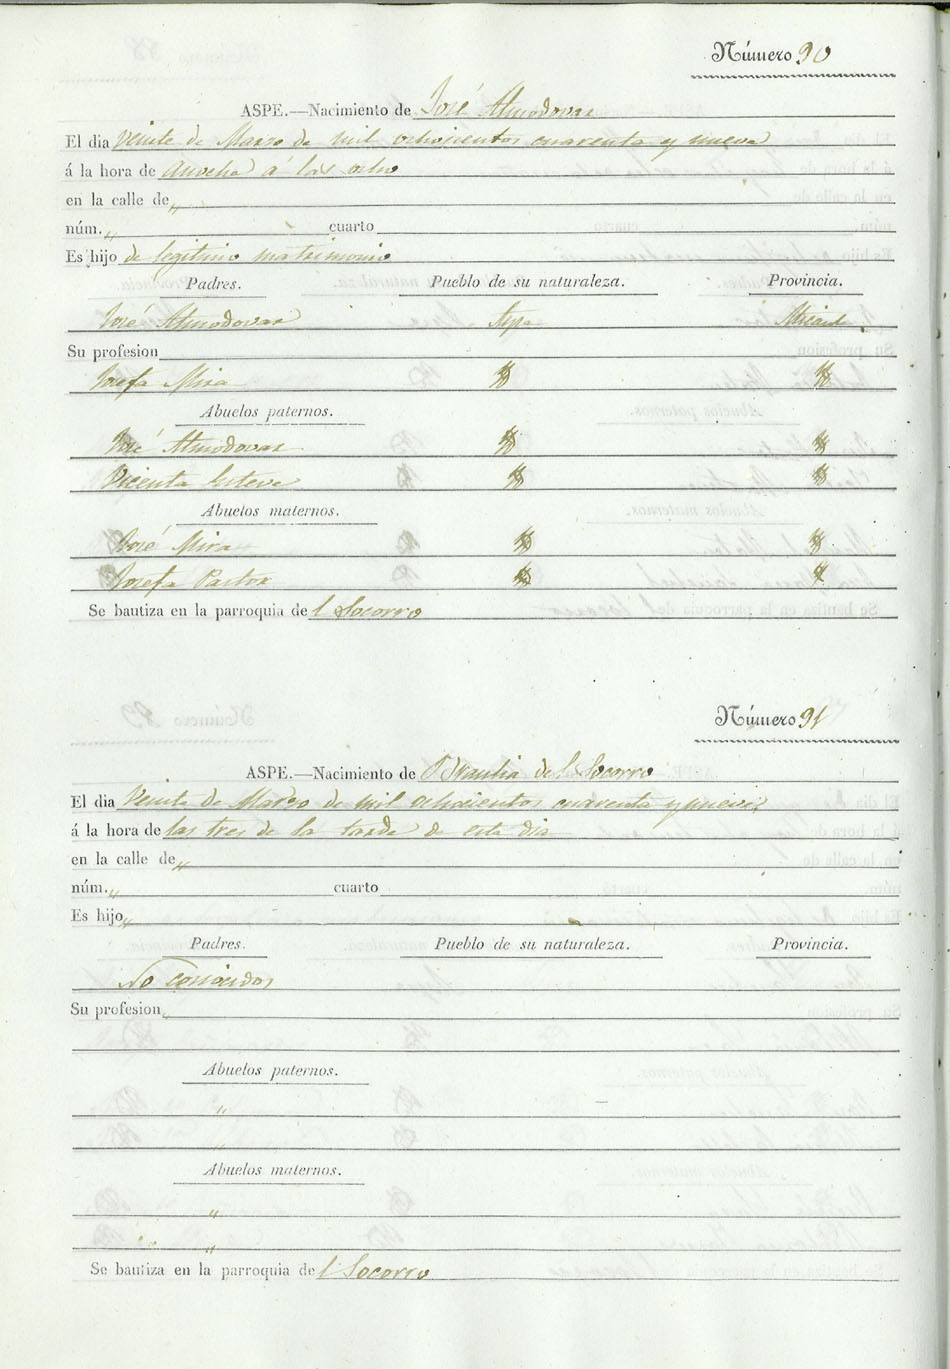 Número 90
ASPE.—Nacimiento de José Almodovar
El dia veinte de Marzo de mil ochocientos cuarenta y nueve
á la hora de anoche á las ocho
en la calle de "
núm. " cuarto
Es hijo de legitimo matrimonio
Padres. Pueblo de su naturaleza. Provincia.
José Almodovar Aspe Alicante
Su profesion
Josefa Mira
Abuelos paternos.
José Almodovar
Vicenta Esteve
Abuelos maternos.
José Mira
Josefa Pastor
Se bautiza en la parroquia de l Socorro
Número 91
ASPE.—Nacimiento de Braulia del Socorro
El dia Veinte de Marzo de mil ochocientos cuarenta y nueve
á la hora de las tres de la tarde de este dia
en la calle de "
núm. " cuarto
Es hijo "
Padres. Pueblo de su naturaleza. Provincia.
No conocidos
Su profesion
Abuelos paternos.
"
"
Abuelos maternos.
"
"
Se bautiza en la parroquia de l Socorro